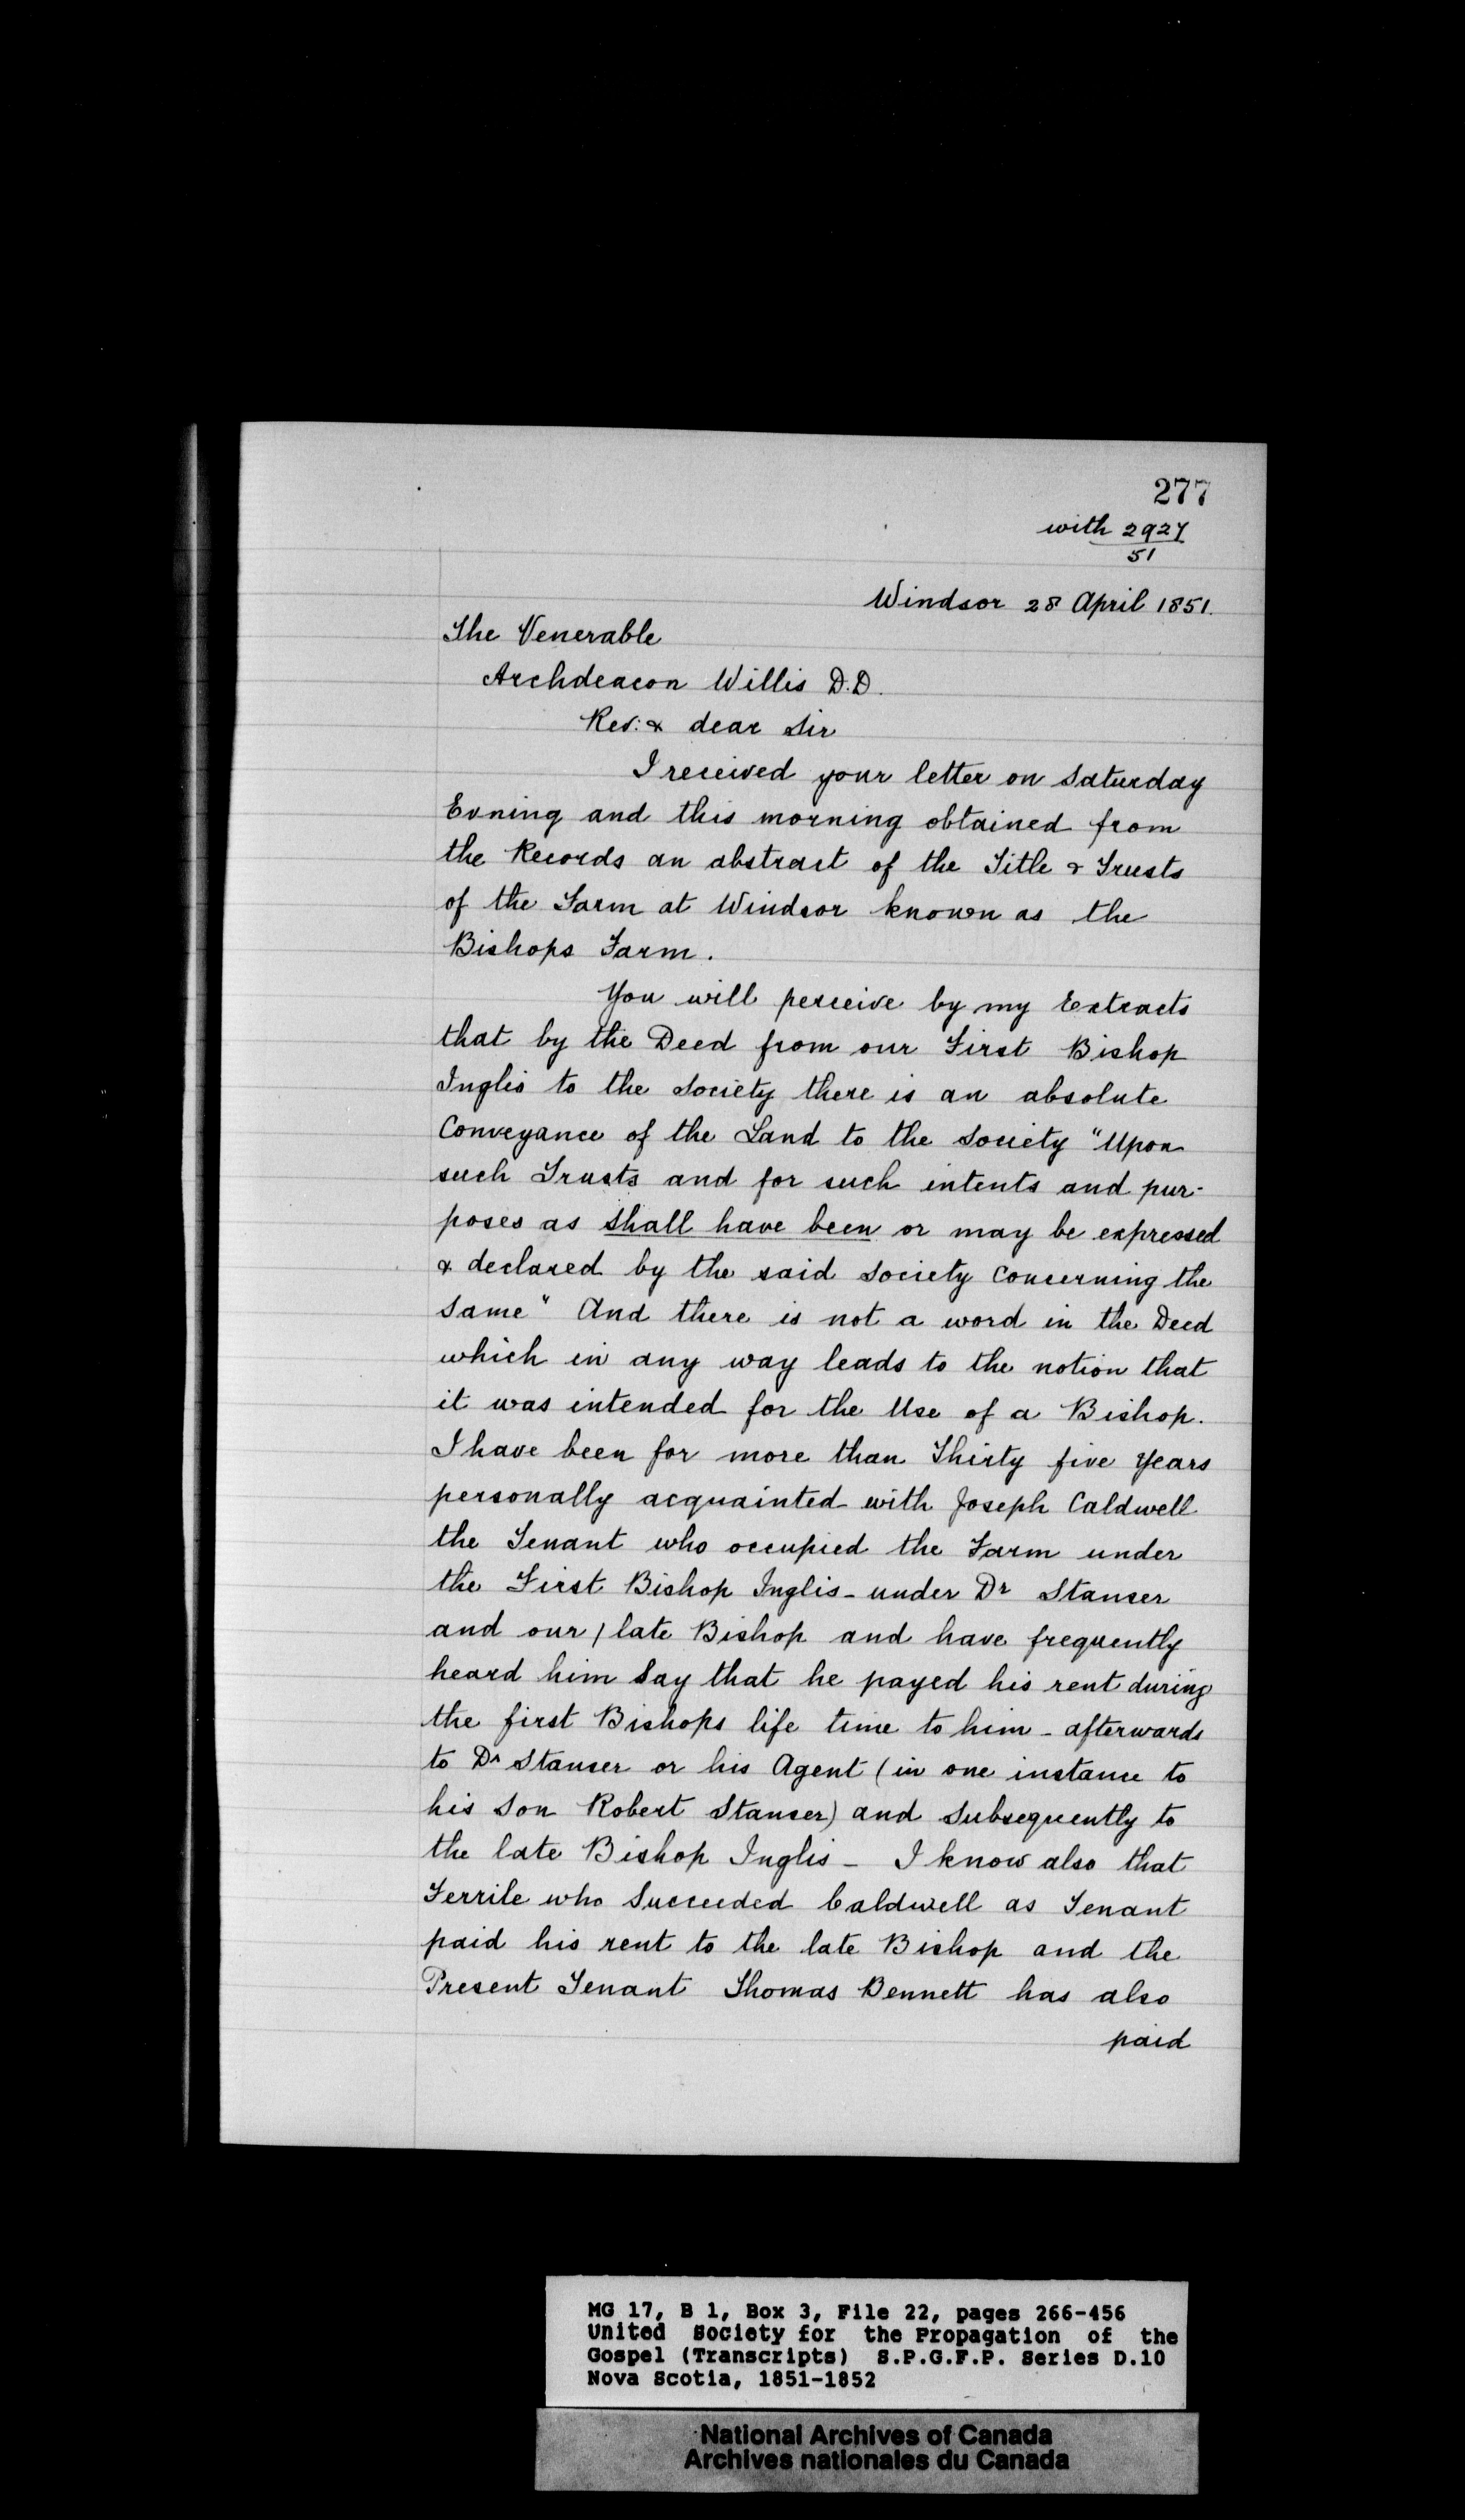 277
with 2927
51
Windsor 28 April 1851.
The Venerable
Archdeacon Willis D.D.
Rev: & dear Sir
I received your letter on Saturday
Evning and this morning obtained from
the Records an abstract of the Title & Trusts
of the Farm at Windsor known as the
Bishops Farm.
You will perceive by my Extracts
that by the Deed from our First Bishop
Inglis to the Society there is an absolute
Conveyance of the Land to the Society "Upon
such Trusts and for such intents and pur-
poses as shall have been or may be expressed
& declared by the said Society Concerning the
Same" And there is not a word in the Deed
which in any way leads to the notion that
it was intended for the Use of a Bishop.
I have been for more than Thirty five Years
personally acquainted with Joseph Caldwell
the Tenant who occupied the Farm under
the First Bishop Inglis - under Dr Stanser
and our / late Bishop and have frequently
heard him Say that he payed his rent during
the first Bishops life time to him - afterwards
to Dr Stanser or his Agent (in one instance to
his Son Robert Stanser) and Subsequently to
the late Bishop Inglis - I know also that
Ferrile who Succeeded Caldwell as Tenant
paid his rent to the late Bishop and the
Present Tenant Thomas Bennett has also
paid
MG 17, B 1, Box 3, File 22, pages 266-456
United Society for the Propagation of the
Gospel (Transcripts) S.P.G.F.P. Series D.10
Nova Scotia, 1851-1852
National Archives of Canada
Archives nationales du Canada